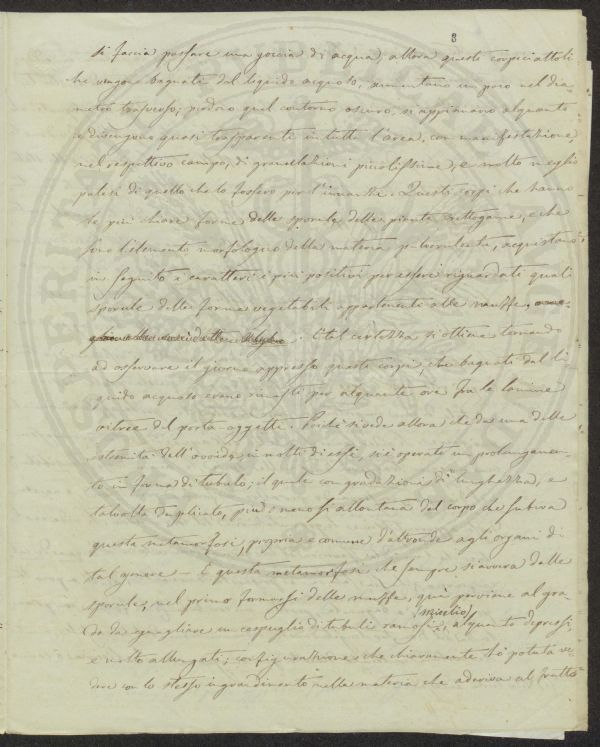 8
si faccia passare una goccia di acqua, allora questi corpicciattoli
che vengono bagnati dal liquido acquoso, aumentano un poco nel dia-
metro trasverso; perdono quel contorno oscuro, si appianano alquanto
e divengono quasi trasparenti in tutta l'area, con manifestazione,
nel rispettivo campo, di granulazioni piccolissime, e molto meglio
palesi di quello che lo fossero per l'innanzi. Questi corpi che hanno
le più chiare forme delle sporule delle piante crittogame, e che
sono l'elemento morfologico della materia pulverulenta, acquistano
in seguito i caratteri i più positivi per essere riguardati quali
sporule delle forme vegetabili appartenente alle muffe,
E tal certezza si ottiene tornando
ad osservare il giorno appresso questi corpi, che bagnati dal li-
quido acquoso erano rimasti per alquante ore fra le lamine
vitree del porta-oggetti. Poiché si vede allora che da una delle
estremità dell'ovoide, in molti di essi, si è operato un prolungamen-
to in forma di tubulo; il quale con gradazioni di lunghezza, e
talvolta duplicato, più o meno si allontana dal corpo che subiva
questa metamorfosi, propria e comune d'altronde agli organi di
tal genere — E questa metamorfosi che sempre si avvera dalle
sporule, nel primo formarsi delle muffe, qui perviene al gra-
do da eguagliare un cespuglio di tubuli ramosi (micelio), alquanto depressi,
e molto allungati; configurazione, che chiaramente si è potuta ve-
dere con lo stesso ingrandimento nella materia che aderiva al frutto